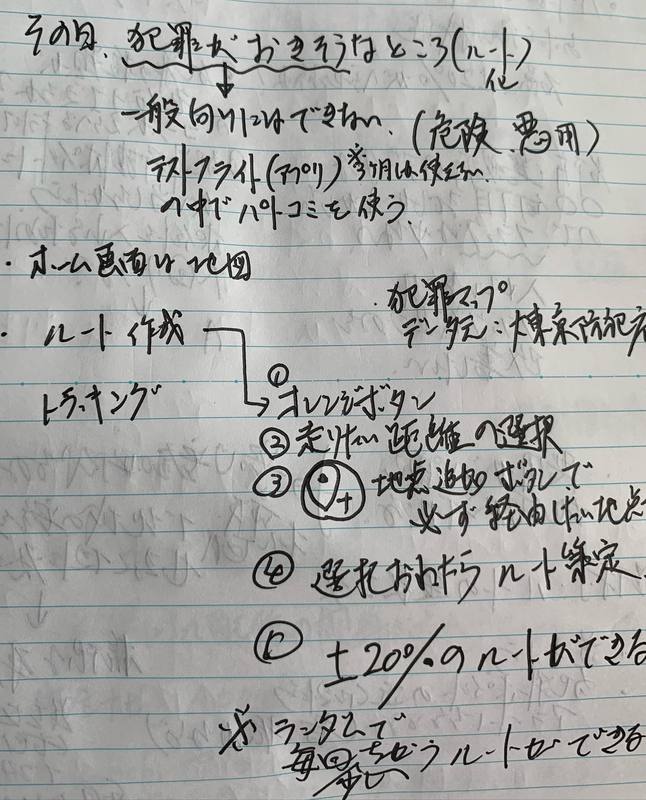 その日、犯罪がおきそうなところ(ルート)
化
一般向けにはできない。(危険、悪用)
テストフライト(アプリ) ※3ヶ月しか使えない
の中でパトコミを使う。
・ホーム画面は地図
・犯罪マップ
データ元:大東京防犯
・ルート作成
トラッキング
① オレンジボタン
② 走りたい距離の選択
③ + 地点追加ボタンで
必ず経由したい地点
④ 選択おわったらルート策定
⑤ ±20%のルートができる
※ ランダムで
毎回ちがうルートができる